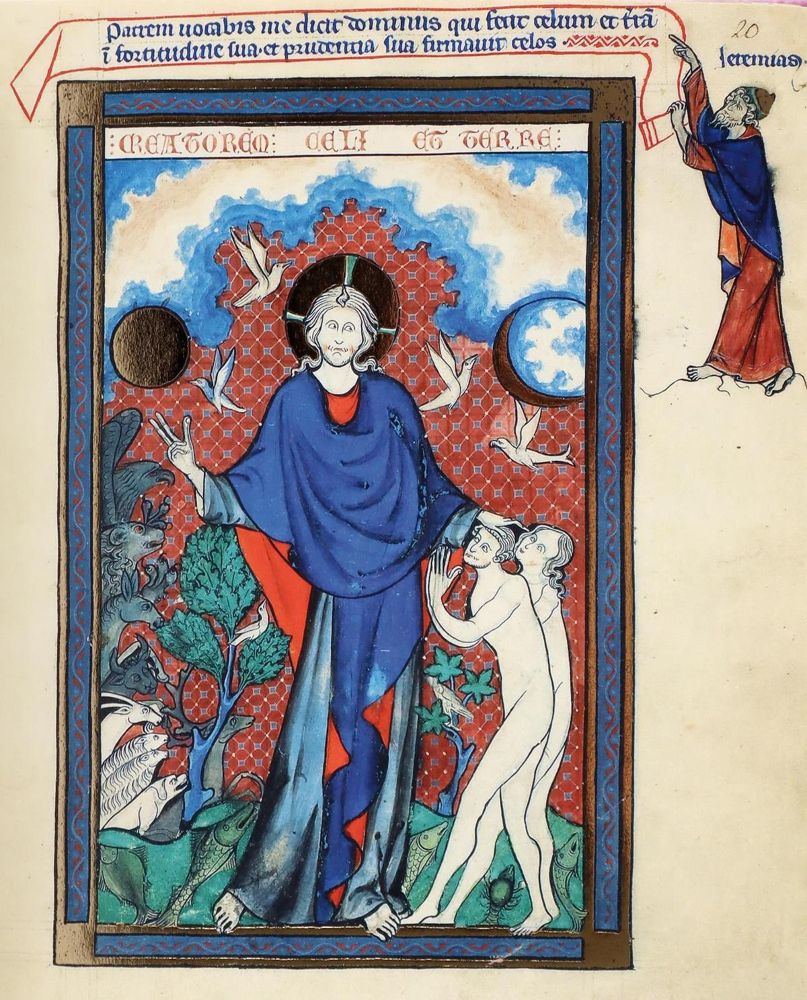 patrem uocabis me dicit dominus qui fecit celum et t̄rā
ī fortitudine sua·et prudentia sua firmauit celos
20
Ieremias·
:CREATOREM: CELI ET TERRE: